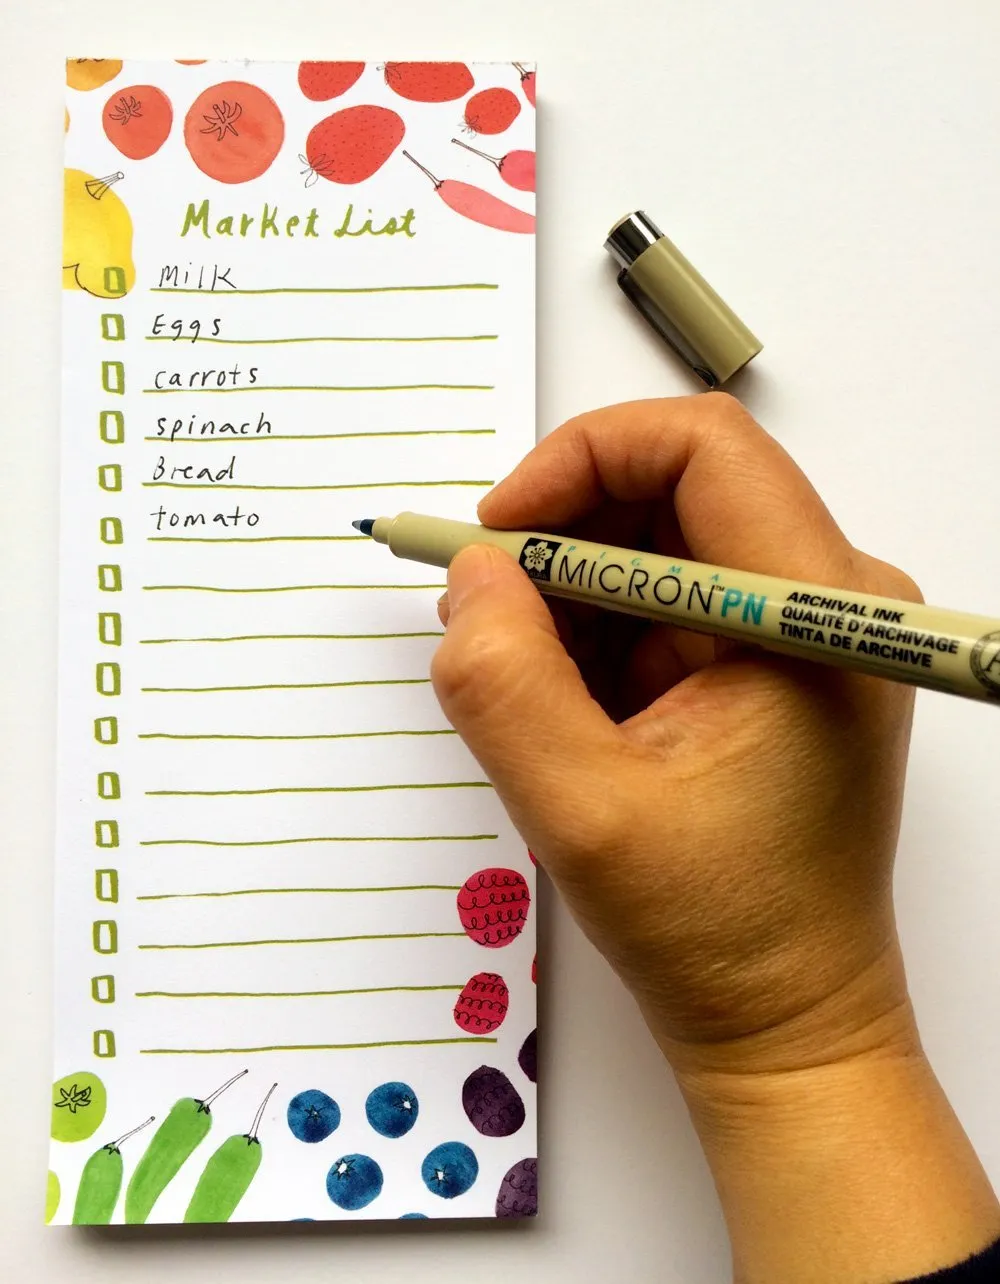 Market List
Milk
Eggs
carrots
spinach
Bread
tomato
PIGMA
MICRON™ PN
ARCHIVAL INK
QUALITÉ D'ARCHIVAGE
TINTA DE ARCHIVE